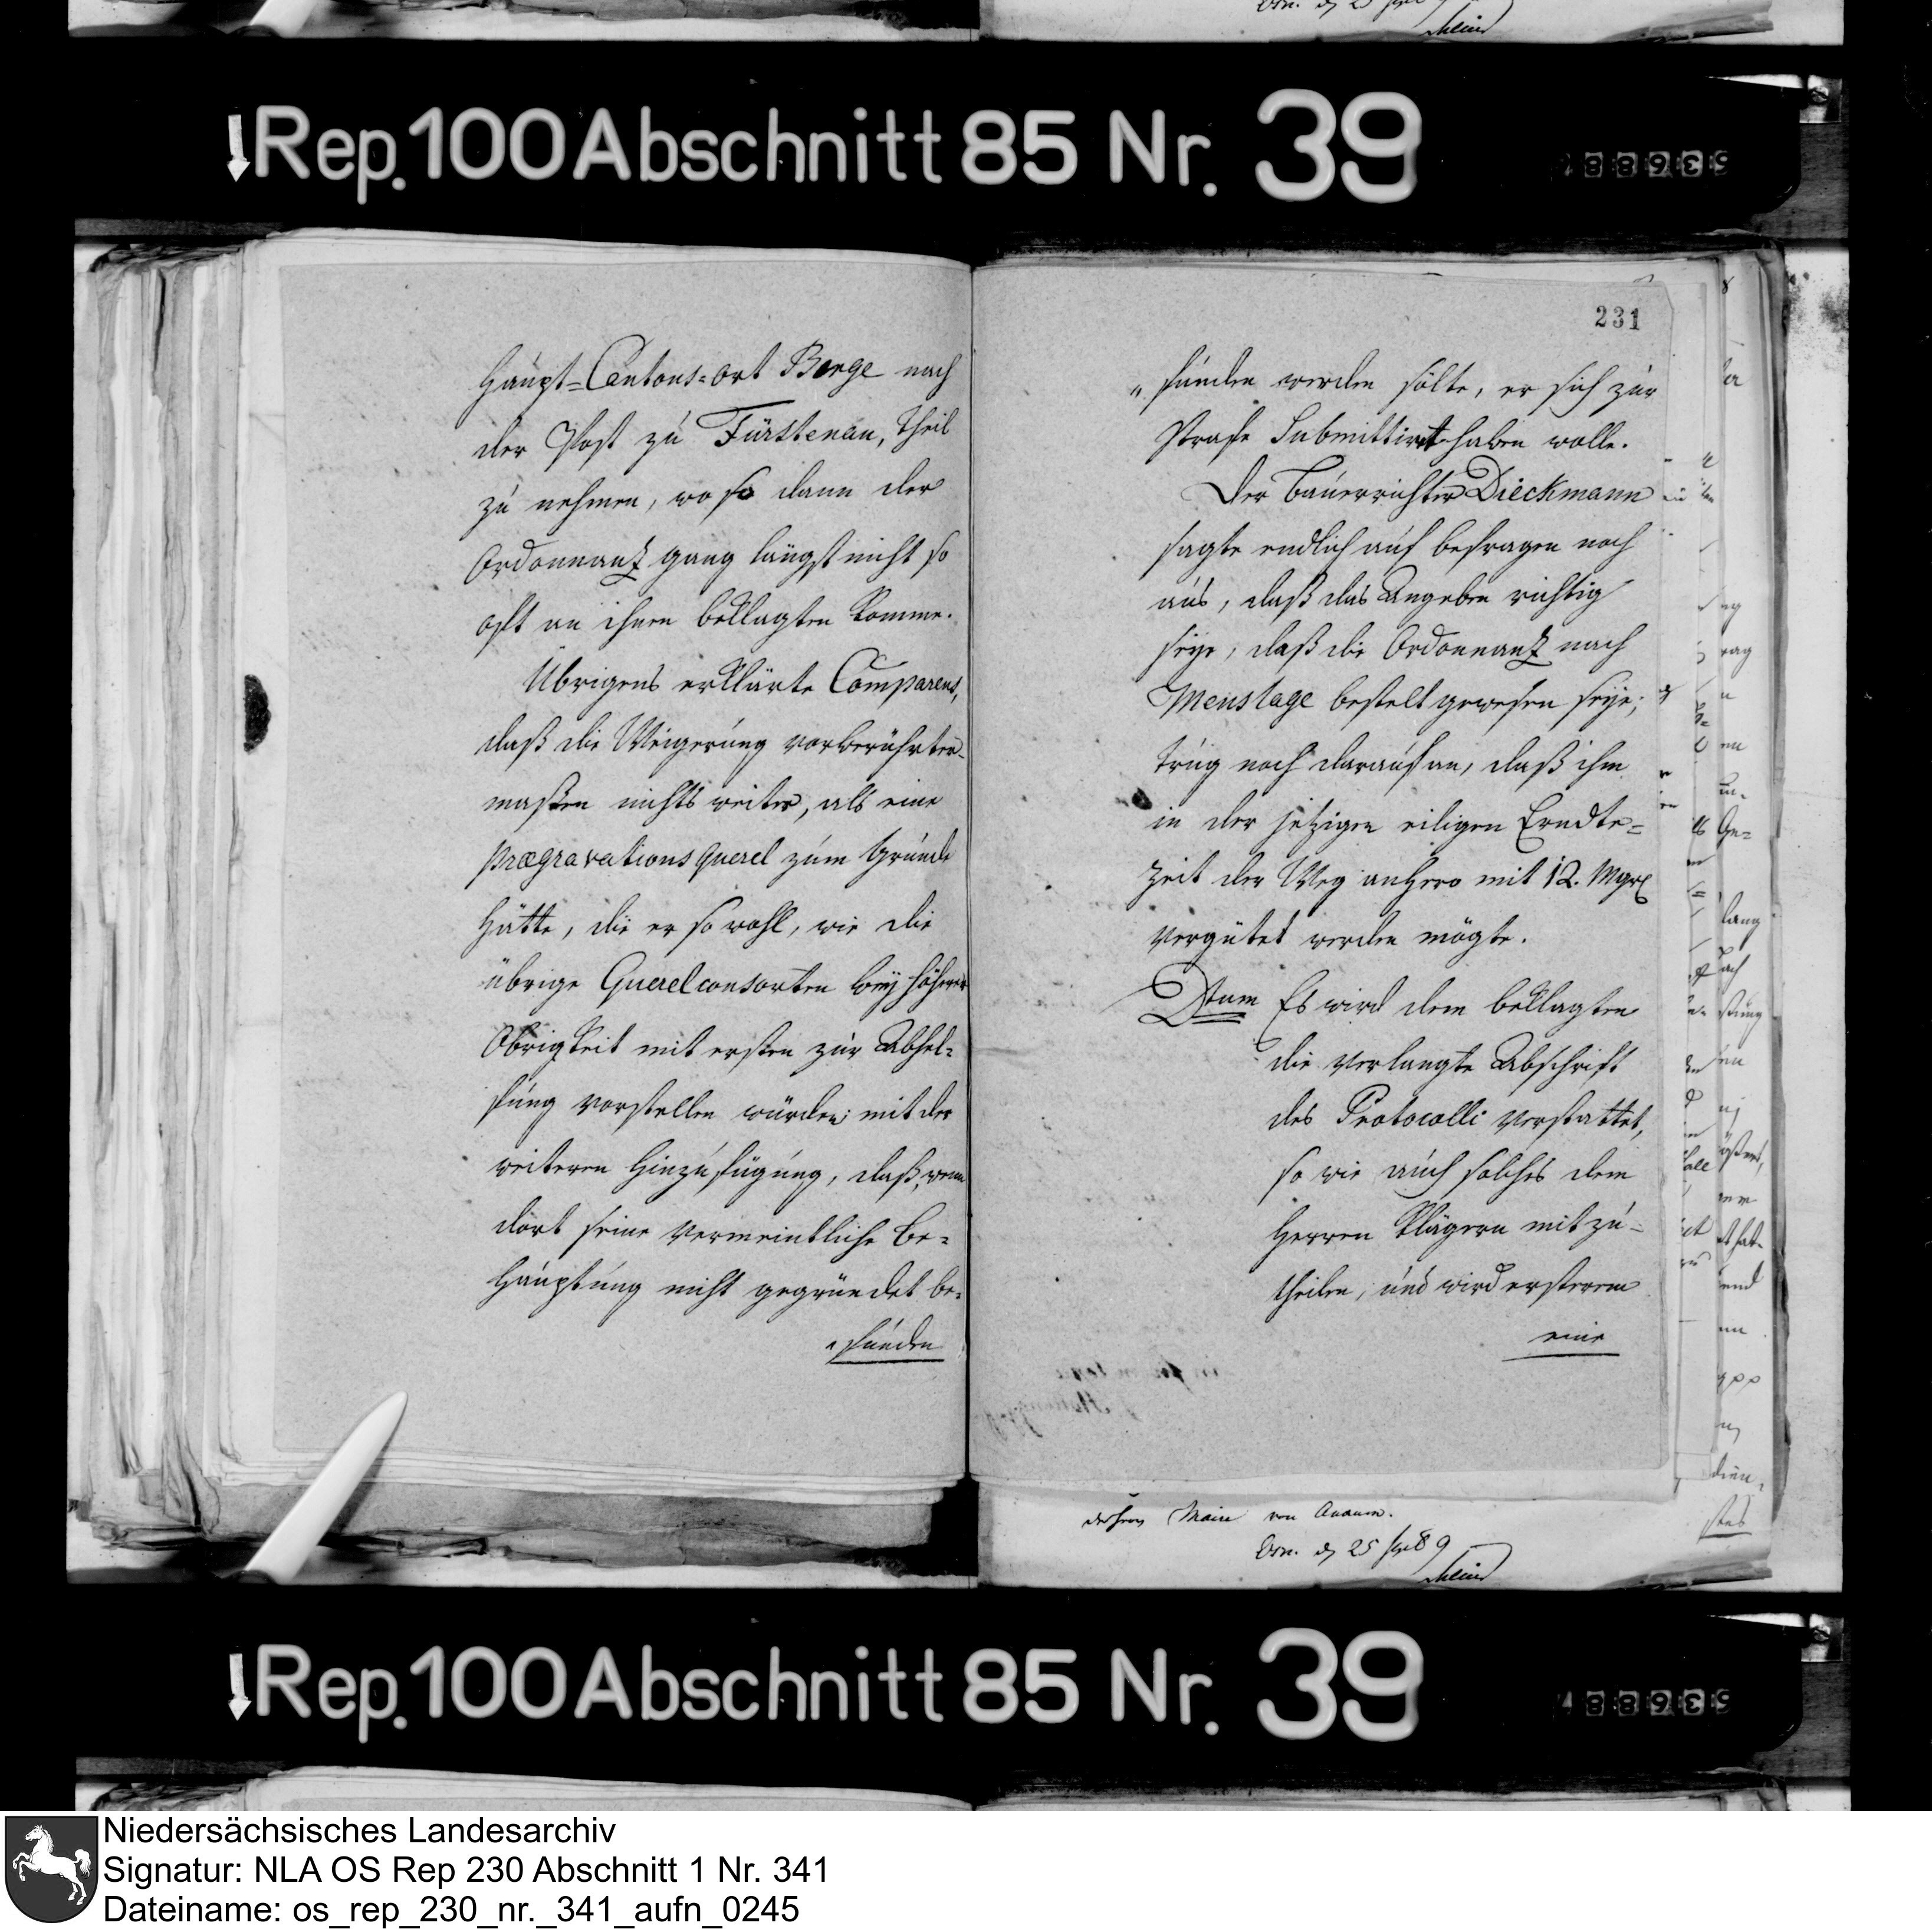 Rep. 100 Abschnitt 85 Nr. 39
Haupt-Cantons-ort Berge nach
der Post zu Fürstenau, Theil
zu nehmen, wo so dann der
Ordonnantz gang längst nicht so
oft an ihnen beklagten komme.
Übrigens erklärte Comparens,
daß die Weigerung vorberührter-
maßen nichts weiter, als eine
prægravations querel zum Grunde
hätte, die er so wohl, wie die
übrige Querelconsorten bey höherer
Obrigkeit mit ersten zur Abhel-
fung vorstellen würden; mit der
weiteren Hinzufügung, daß, wenn
dort seine vermeintliche Be-
hauptung nicht gegründet be-
funden
231
"funden werden solte, er sich zur
Strafe Submittirt haben wolle.
Der Bauerrichter Dieckmann
sagte endlich auf befragen noch
aus, daß das Angeben richtig
seye, daß die Ordonnantz nach
Menslage bestelt gewesen seye;
trug noch darauf an, daß ihm
in der jetzigen eiligen Erndte-
zeit der Weg anhero mit 12. Mgr
vergütet werden mögte.
Dtum Es wird dem beklagten
die verlangte Abschrift
des Protocolli verstattet,
so wie auch solches dem
Herren Klägern mitzu-
theilen, und wird ersterem
eine
Maire von
25
Rep. 100 Abschnitt 85 Nr. 39
Niedersächsisches Landesarchiv
Signatur: NLA OS Rep 230 Abschnitt 1 Nr. 341
Dateiname: os_rep_230_nr._341_aufn_0245